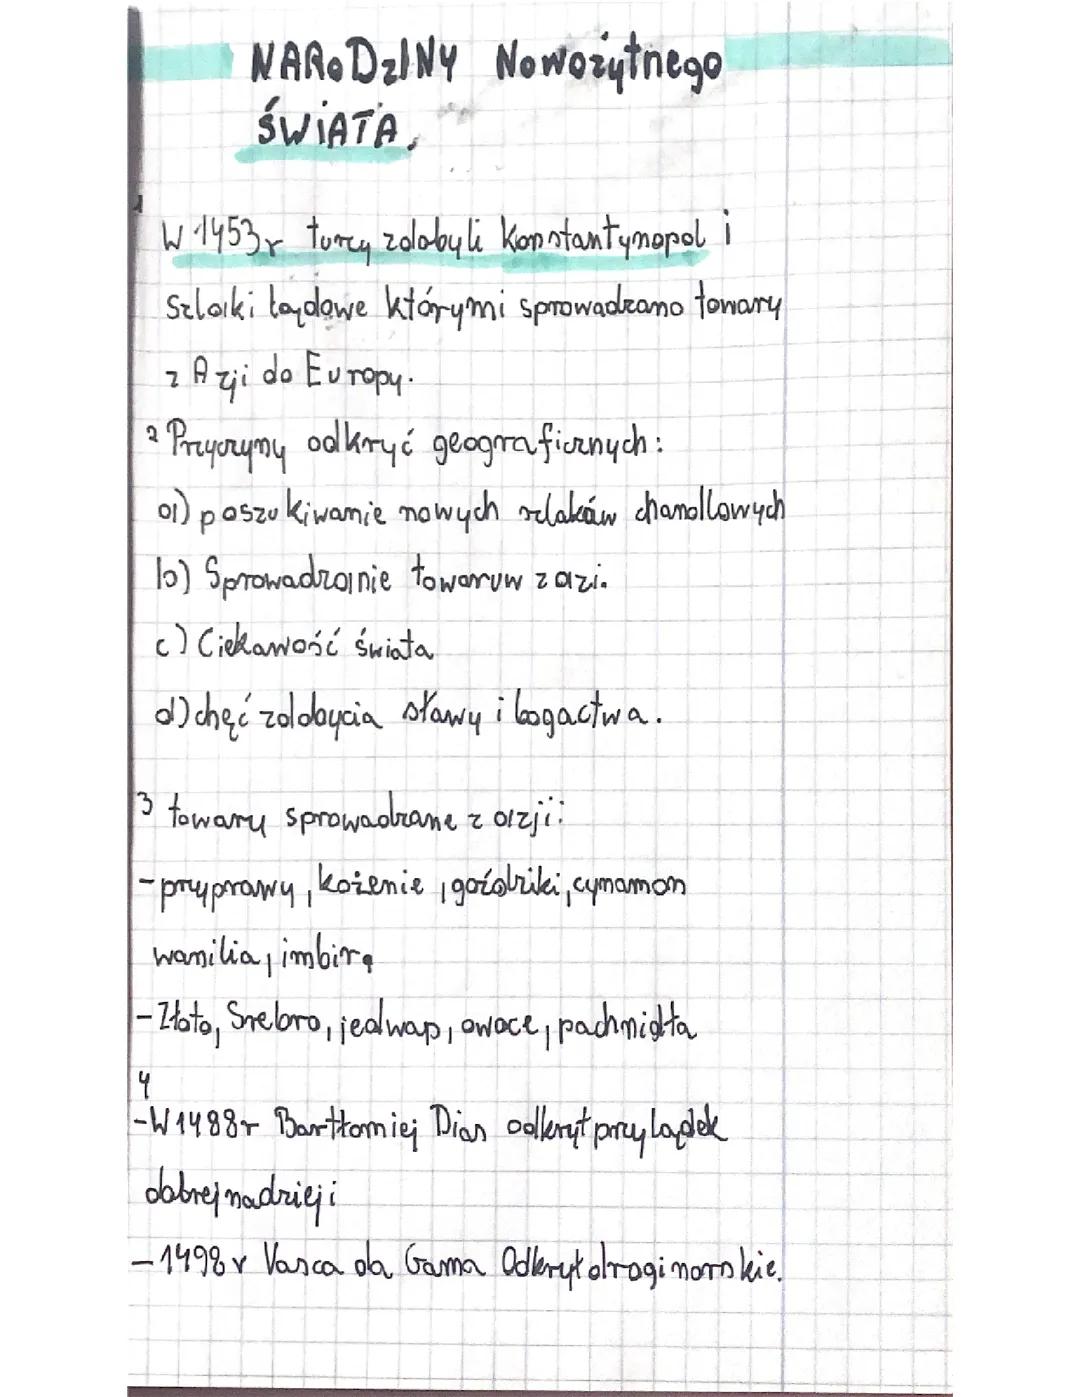 NARODZINY Nowożytnego
ŚWIATA.
1
W 1453r turcy zdobyli Konstantynopol i
Szlaki lądowe którymi sprowadzano towary
z Azji do Europy.
2 Przyczyny odkryć geograficznych:
a) poszukiwanie nowych szlaków chandlowych
b) Sprowadzanie towaruw z azi.
c) Ciekawość świata
d) chęć zdobycia sławy i bogactwa.
3 towary sprowadzane z azji:
- przyprawy, kożenie, goździki, cynamon
wanilia, imbir,
- Złoto, Srebro, jedwap, owoce, pachnidła
4
- W 1488r Bartłomiej Dias odkrył przylądek
dobrej nadzieji
- 1498r Vasca da Gama Odkrył drogi morskie.